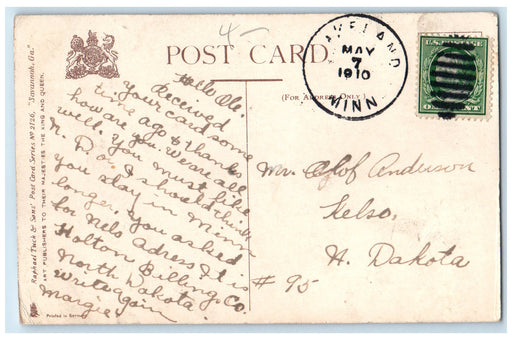 POST CARD.
(For Address Only.)
4-
MAY
7
1910
MINN
U.S. POSTAGE
ONE CENT
Raphael Tuck & Sons' Post Card Series No 2126, "Savannah, Ga."
ART PUBLISHERS TO THEIR MAJESTIES THE KING AND QUEEN.
Hello Ole.
Received
your card some
time ago & thanks
how are you. we are all
well. you must like
N. D. or I should think
you stay in Minn
longer. you asked
for Nels Adress It is
Holton Billings Co.
North Dakota
write again
Margie
Mr. Olof Anderson
Kelso,
N. Dakota
# 95